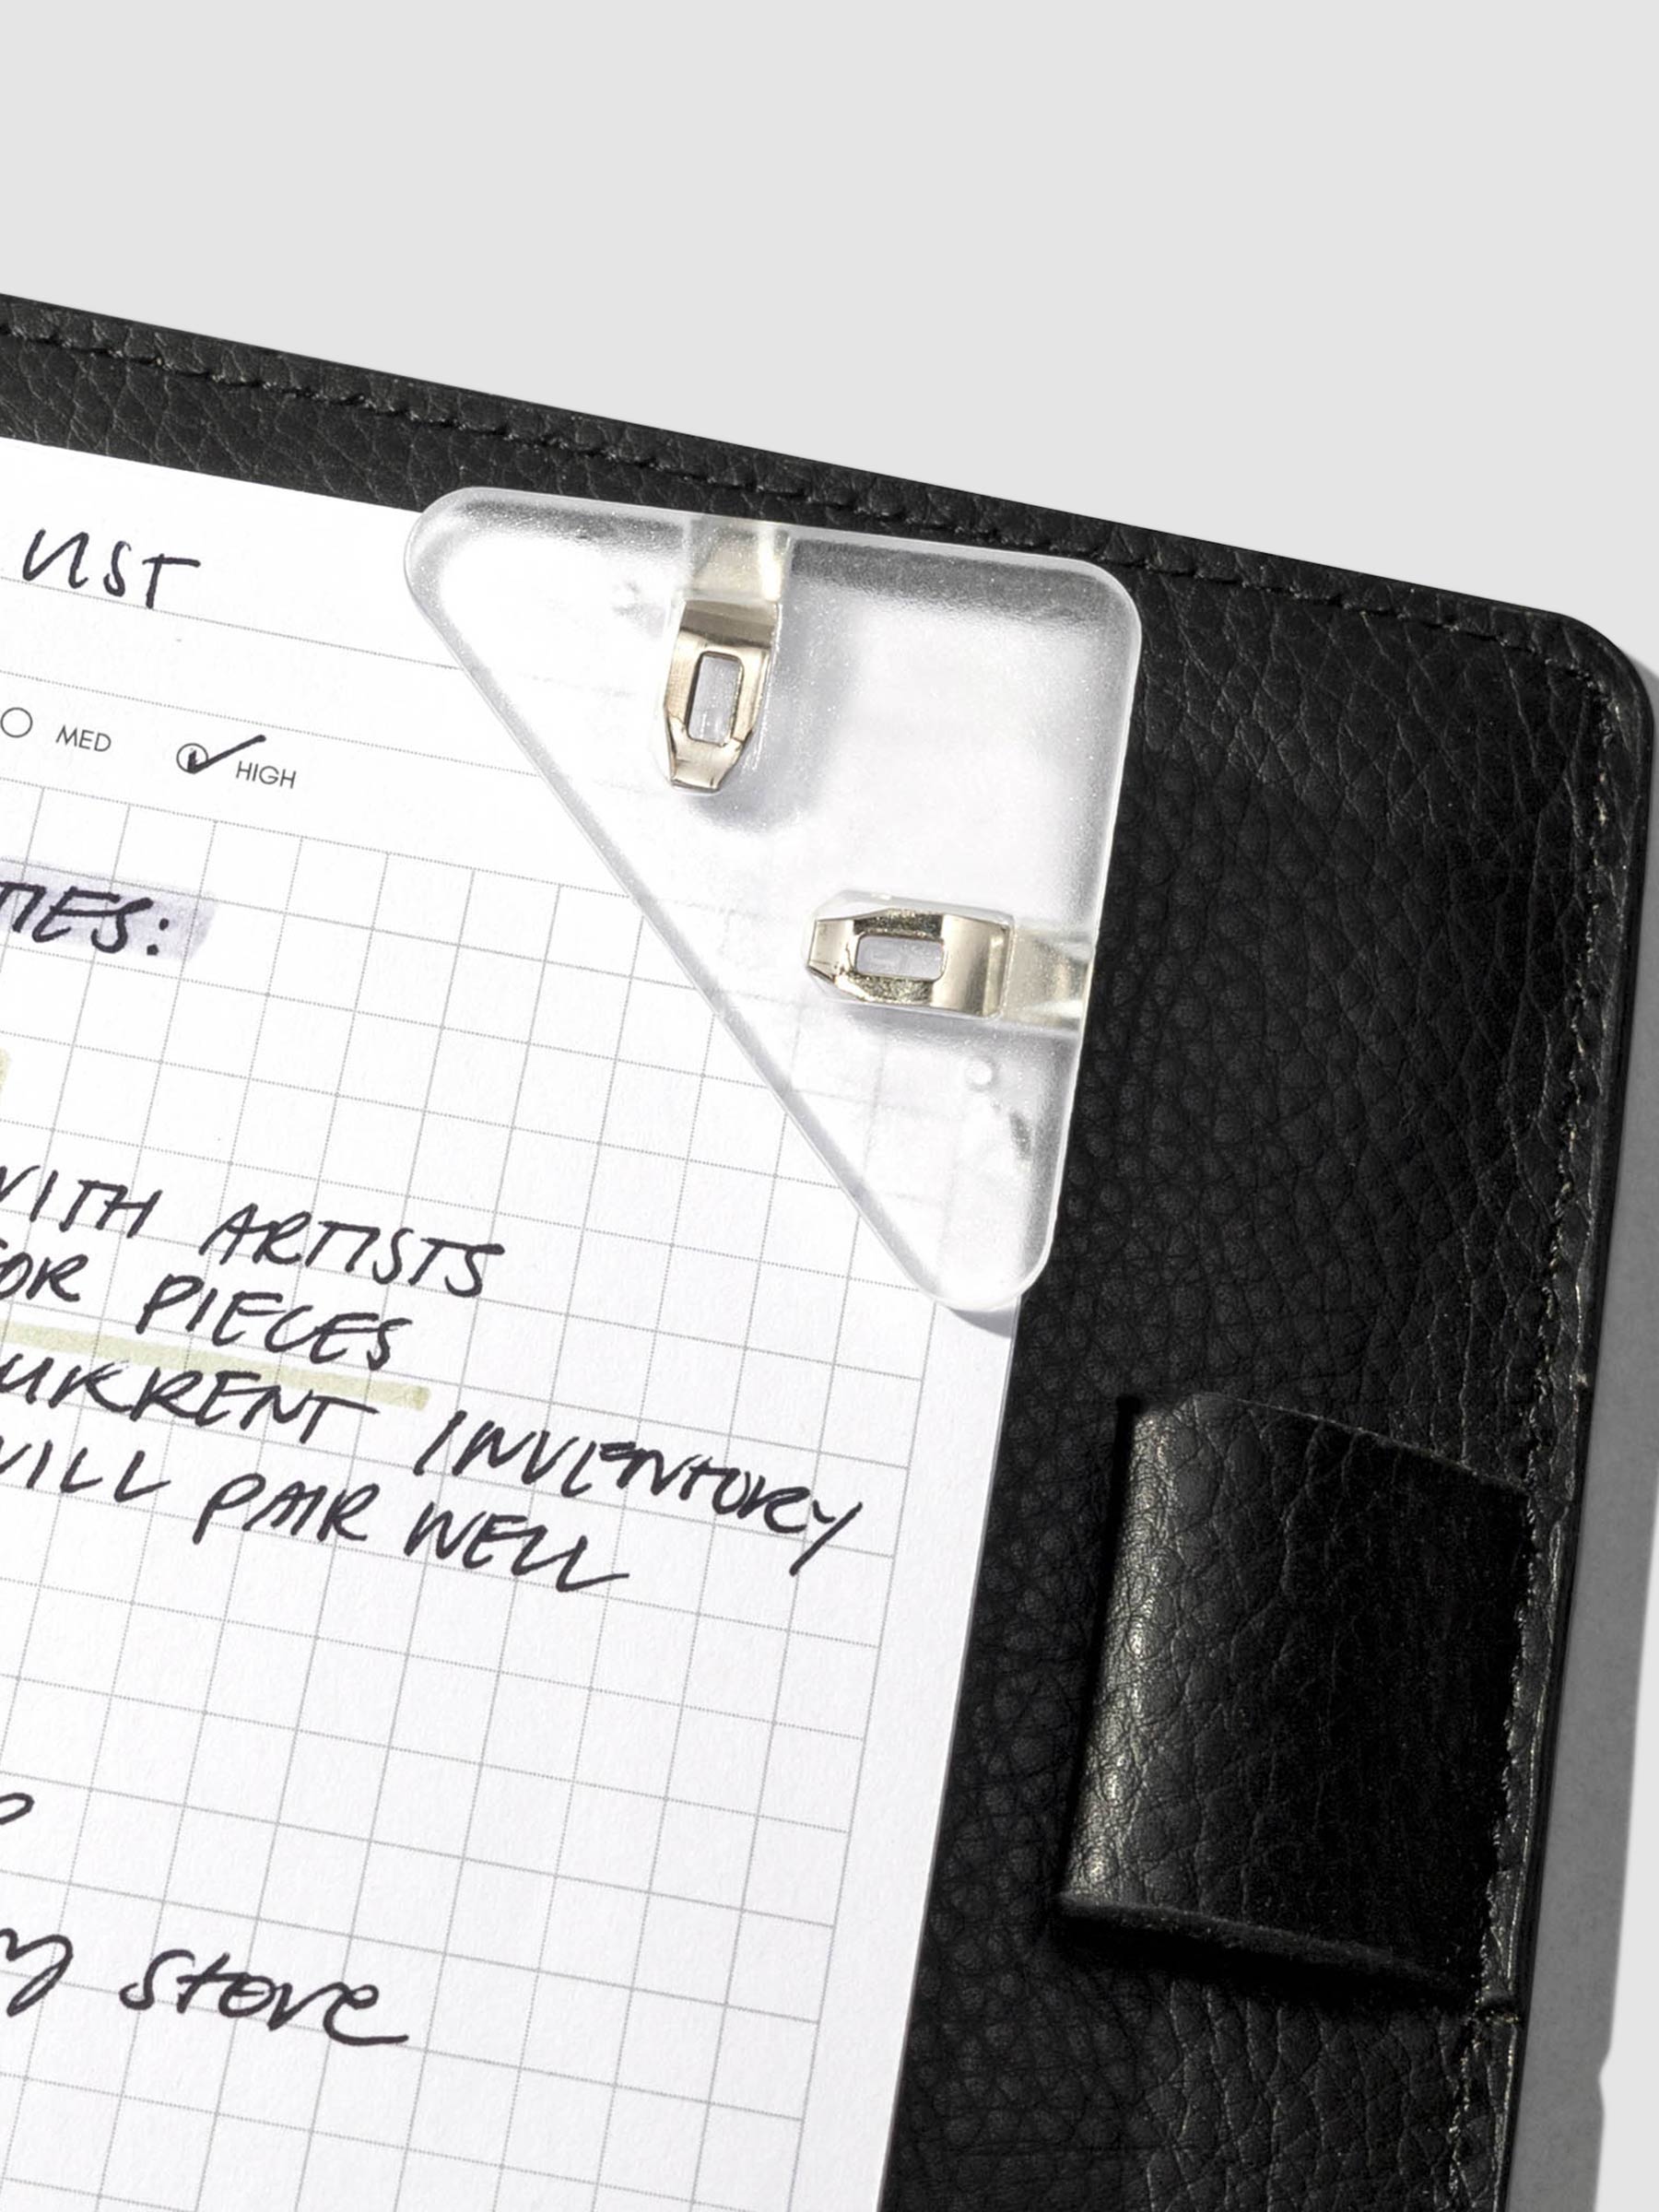 LIST
MED HIGH
TIES:
WITH ARTISTS
FOR PIECES
CURRENT INVENTORY
WILL PAIR WELL
store